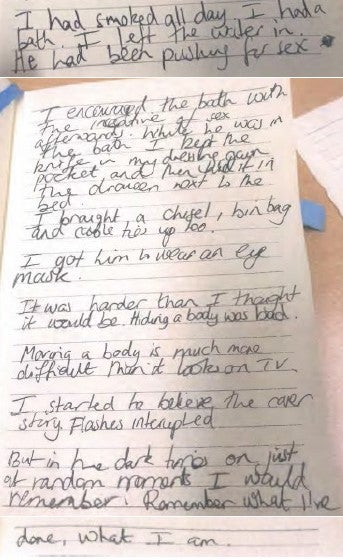 I had smoked all day. I had a
bath. I left the water in.
He had been pushing for sex
I encouraged the bath with
the incentive of sex
afterwards. While he was in
the bath I kept the
knife in my dressing gown
pocket and then hid it in
the drawer next to the
bed.
I brought a chisel, bin bag
and cable ties up too.
I got him to wear an eye
mask.
It was harder than I thought
it would be. Hiding a body was bad.
Moving a body is much more
difficult than it looks on TV
I started to believe the cover
story. Flashes interrupted
But in the dark times or just
at random moments I would
remember. Remember what I've
done, what I am.